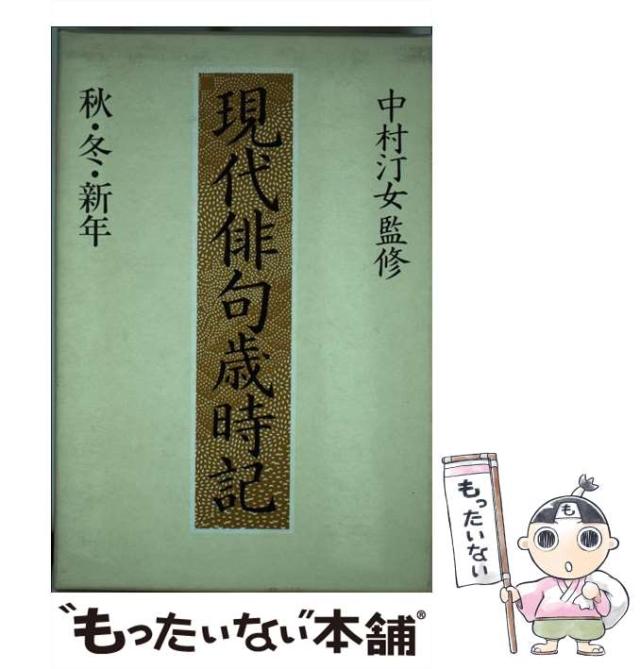 中村汀女監修
現代俳句歳時記
秋・冬・新年
もったいない
も
"もったいない"本舗®